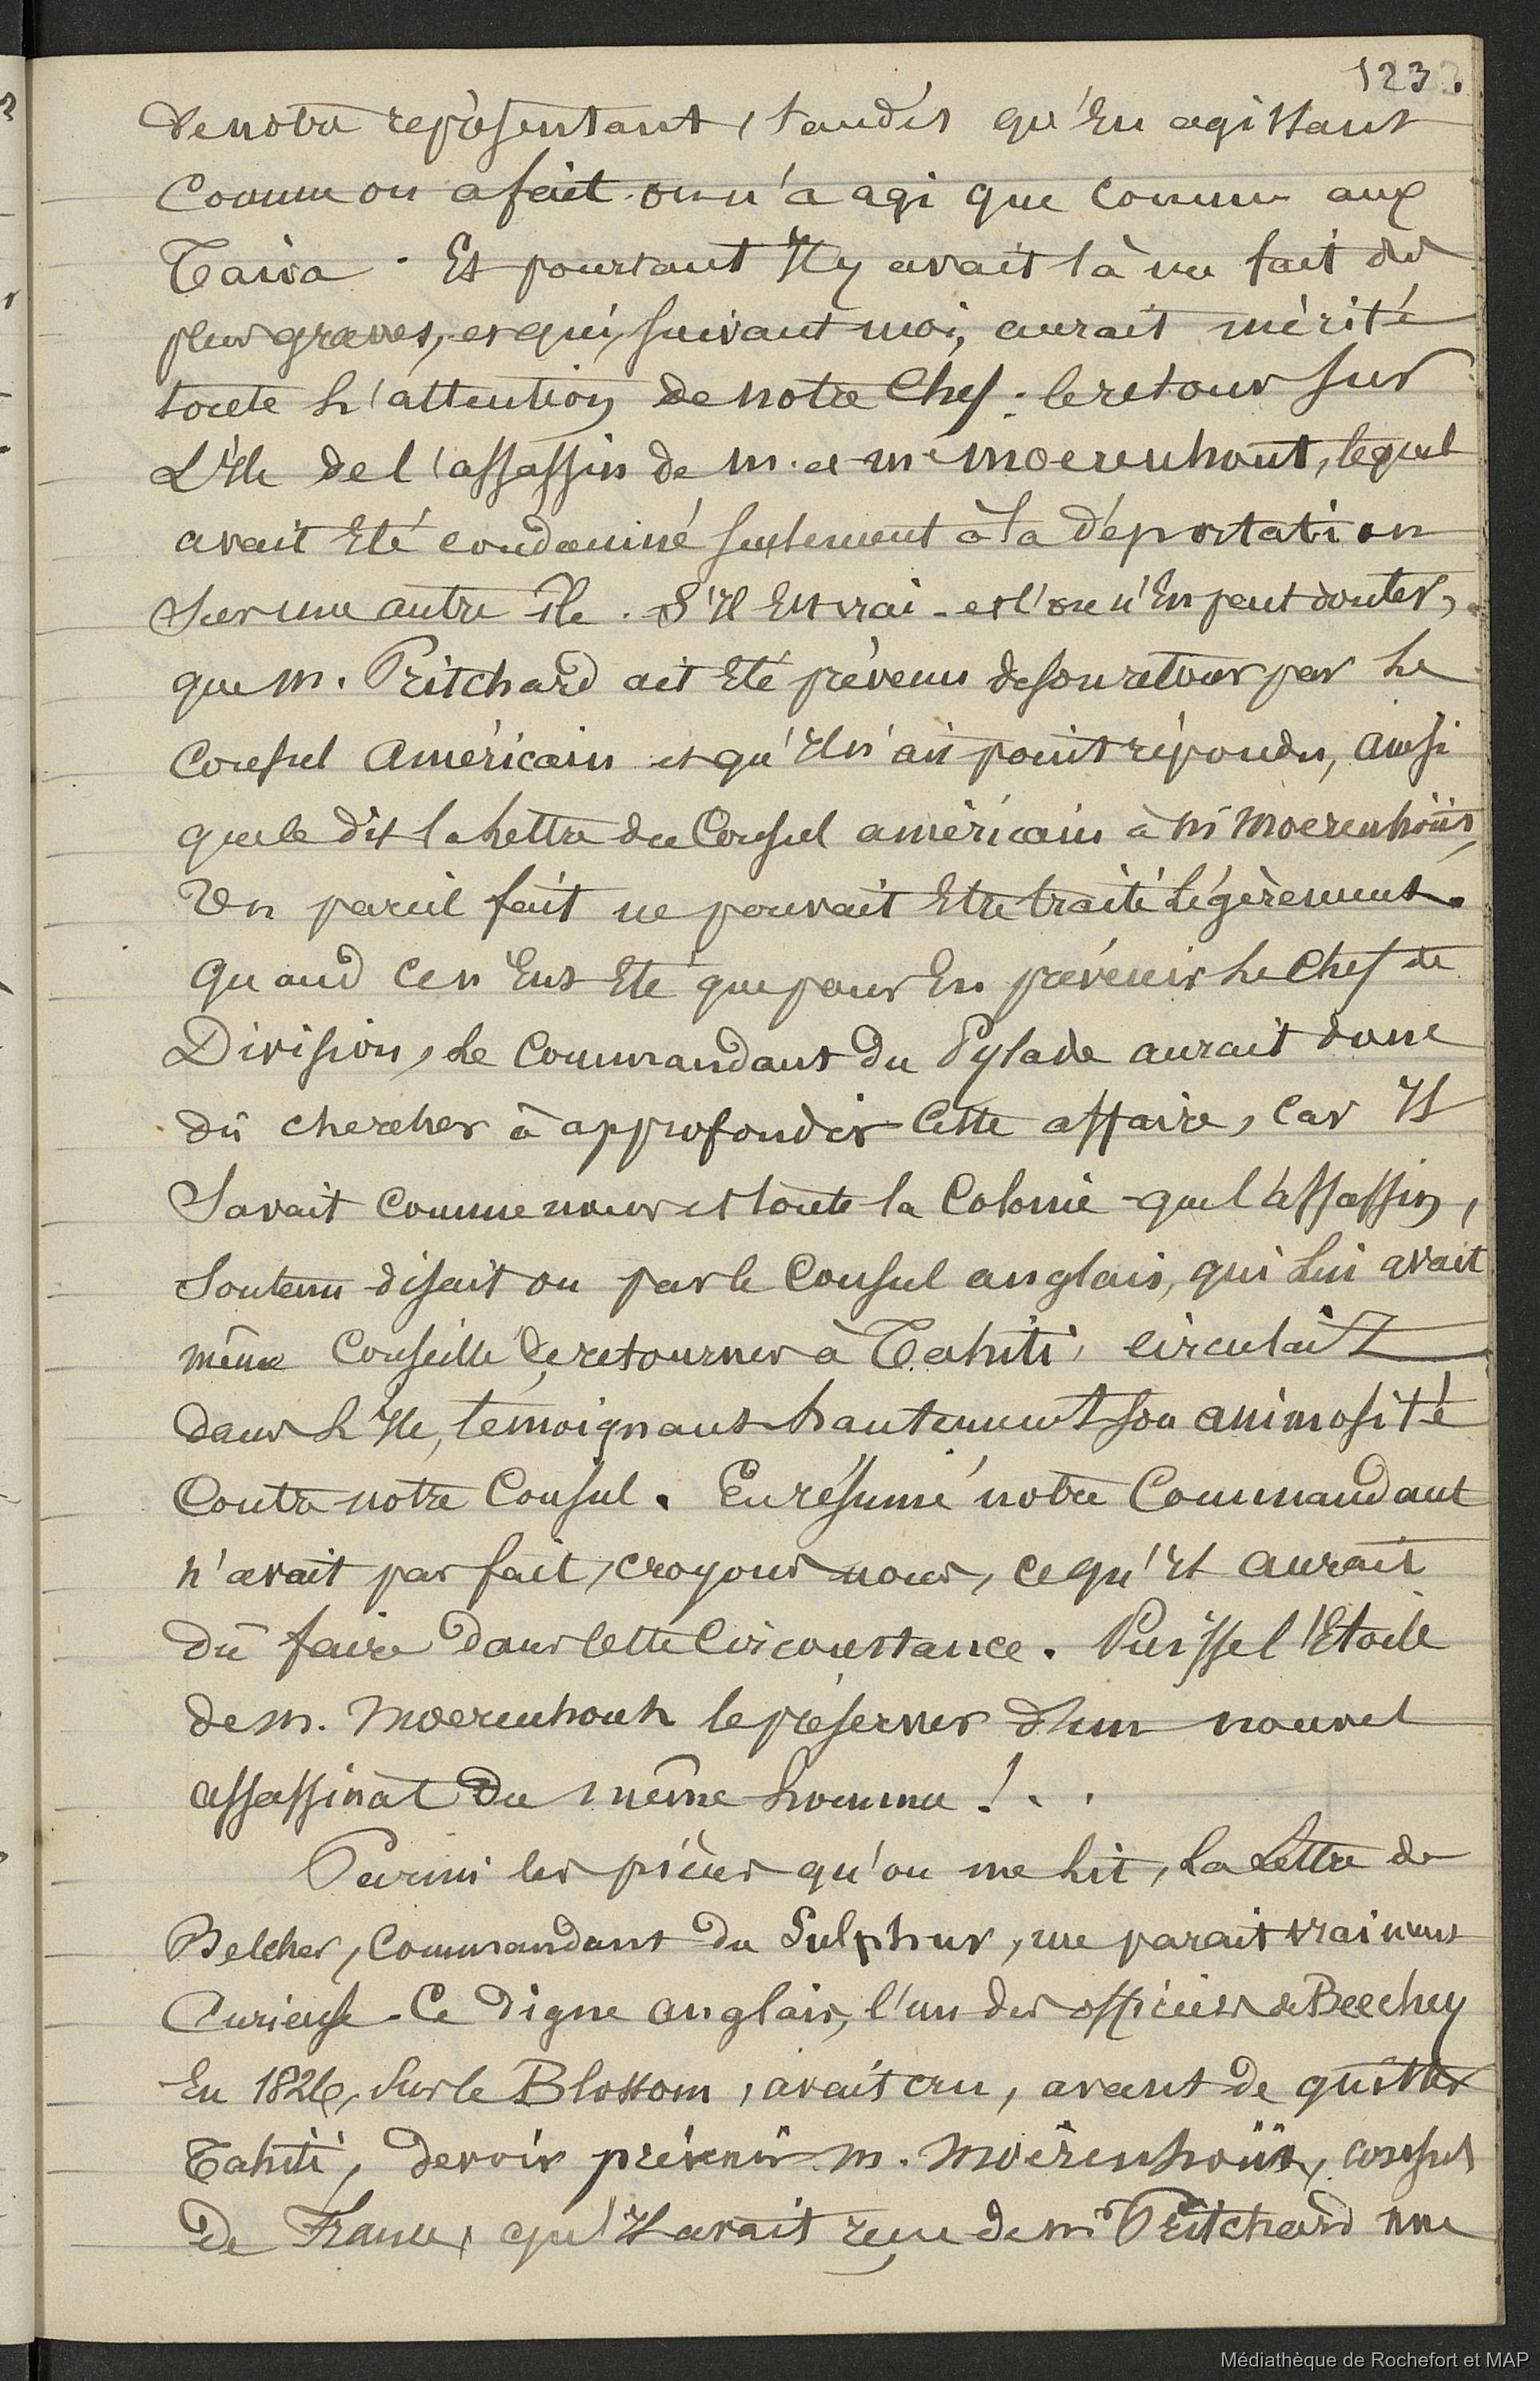 1233.
de notre représentant, tandis qu'en agissant
comme on a fait on n'a agi que comme aux
Taïva. Et pourtant Il y avait là un fait des
plus graves, et qui, suivant moi, aurait mérité
toute L'attention de notre Chef: le retour sur
L'Ile de l'assassin de M. et Me Moerenhout, lequel
avait Eté condamné seulement à la déportation
sur une autre île. S'Il Est vrai - et l'on n'En peut douter,
que M. Pritchard ait Eté prévenu de son retour par Le
Consul Américain et qu'Il n'ait point répondu, ainsi
que le dit la Lettre du Consul américain à Mr Moerenhoüt,
Un pareil fait ne pouvait Etre traité Légèrement.
Quand ce n'Eut Eté que pour En prévenir Le Chef de
Division, Le Commandant du Pylade aurait donc
dû chercher à approfondir Cette affaire, Car Il
Savait comme nous et toute la Colonie que l'assassin,
Soutenu disait on par le Consul anglais, qui Lui avait
même Conseillé de retourner à Tahiti, circulait
dans L'Ile, témoignant hautement son animosité
Contre notre Consul. En résumé notre Commandant
n'avait pas fait, croyons nous, ce qu'Il aurait
dû faire dans cette Circonstance. Puisse l'Etoile
de M. Moerenhout le préserver d'un nouvel
assassinat du même homme!..
Parmi les pièces qu'on me Lit, La Lettre de
Belcher, Commandant du Sulphur, me parait vraiment
Curieuse. Ce digne anglais, l'un des officiers de Beechey
En 1826, Sur le Blossom, avait cru, avant de quitter
Tahiti, devoir prévenir M. Moërenhoüt, consul
de France, qu'Il avait reçu de Mr Pritchard une
Médiathèque de Rochefort et MAP